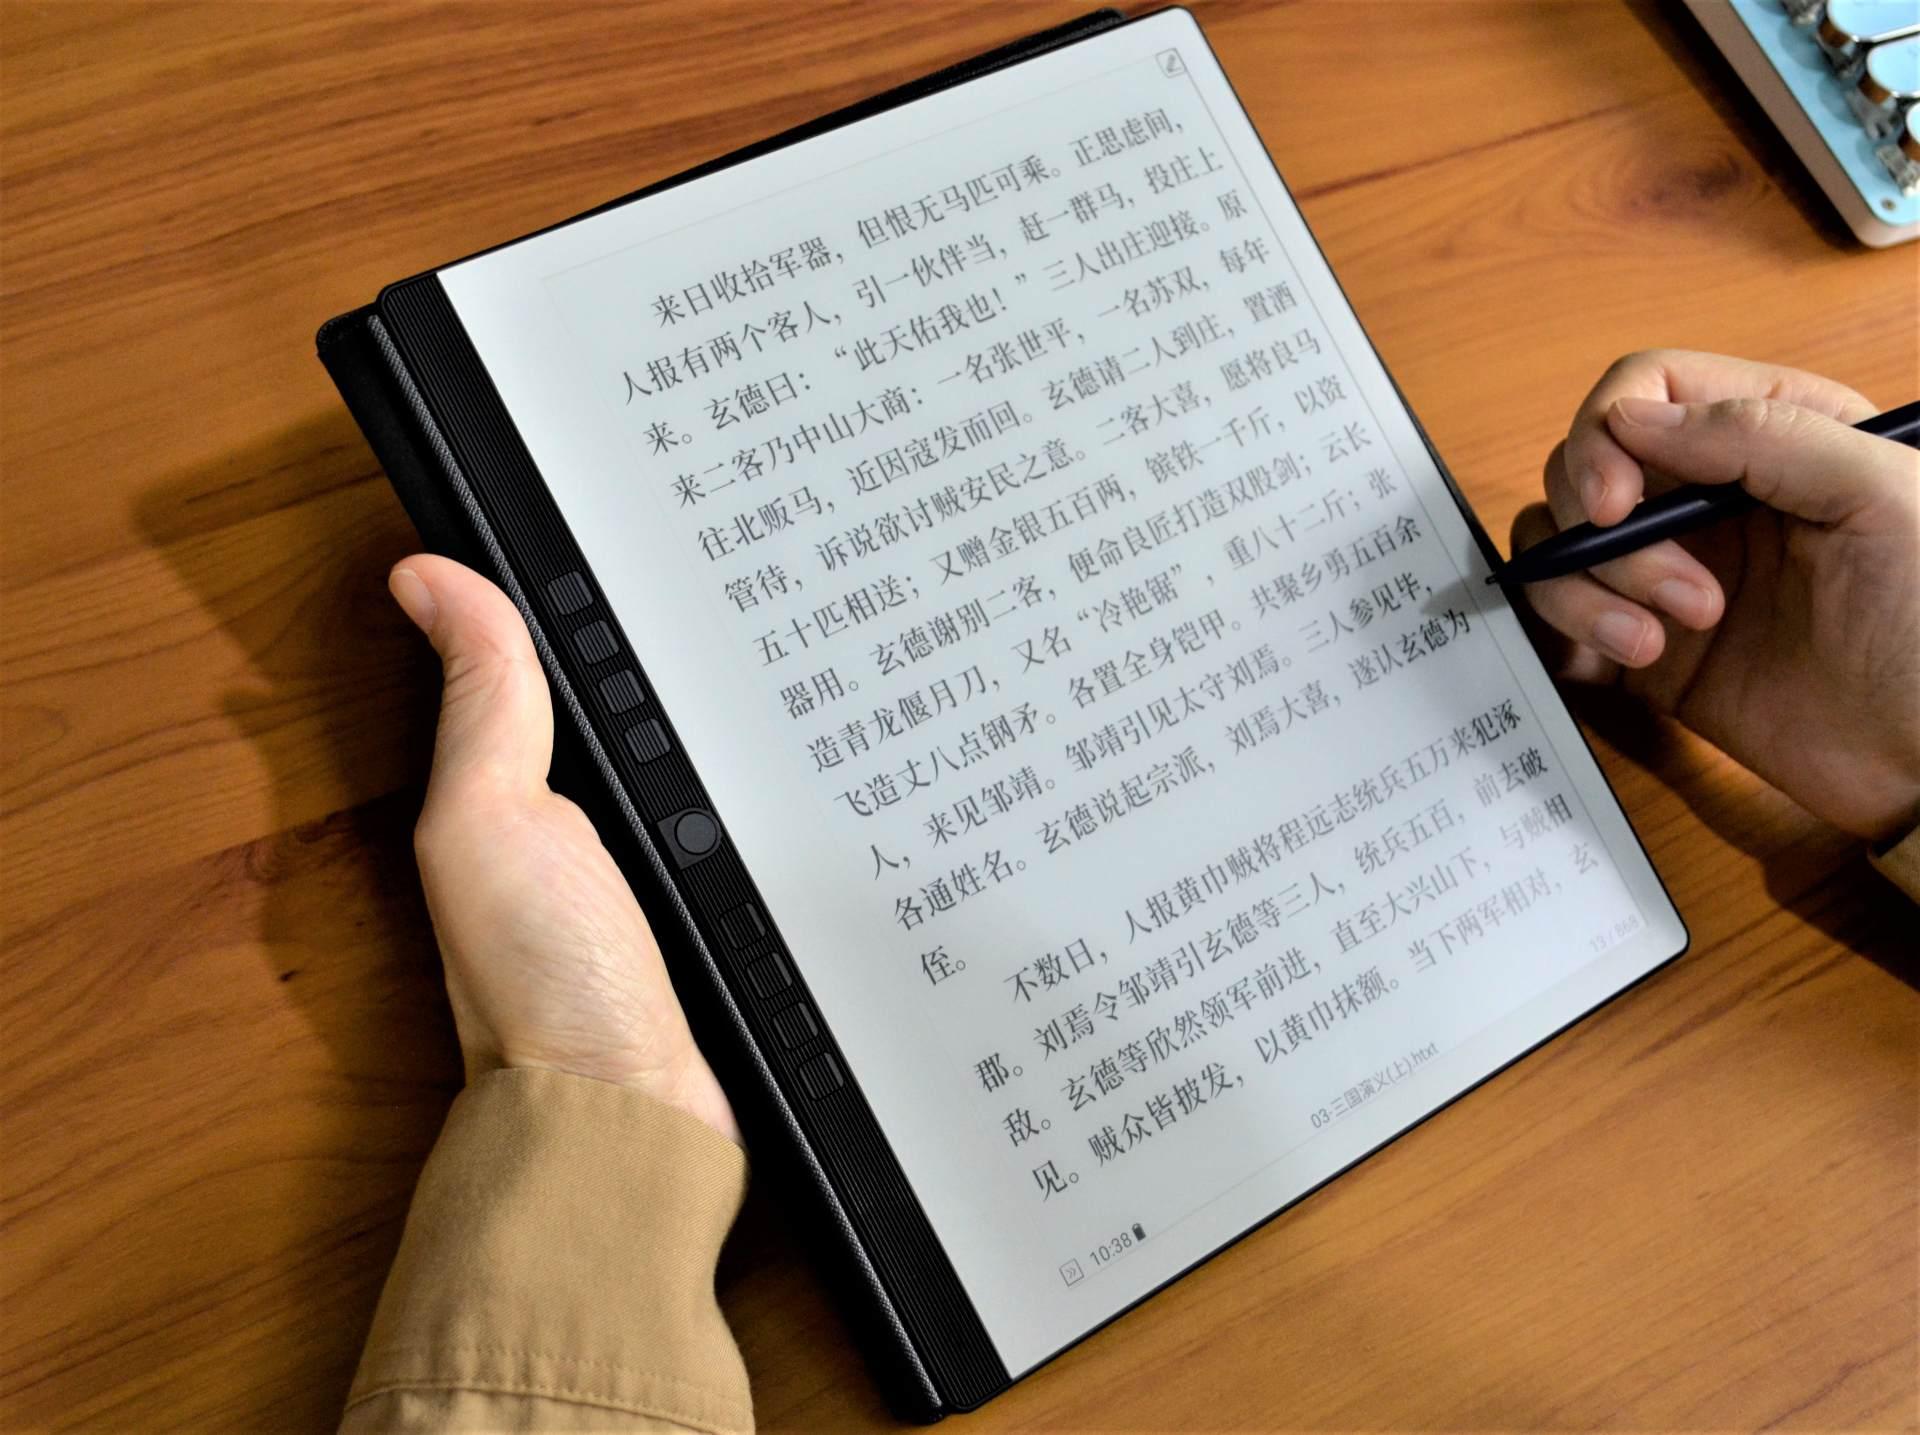 来日收拾军器，但恨无马匹可乘。正思虑间，
人报有两个客人，引一伙伴当，赶一群马，投庄上
来。玄德曰：“此天佑我也！”三人出庄迎接。原
来二客乃中山大商：一名张世平，一名苏双，每年
往北贩马，近因寇发而回。玄德请二人到庄，置酒
管待，诉说欲讨贼安民之意。二客大喜，愿将良马
五十匹相送；又赠金银五百两，镔铁一千斤，以资
器用。玄德谢别二客，便命良匠打造双股剑；云长
造青龙偃月刀，又名“冷艳锯”，重八十二斤；张
飞造丈八点钢矛。各置全身铠甲。共聚乡勇五百余
人，来见邹靖。邹靖引见太守刘焉。三人参见毕，
各通姓名。玄德说起宗派，刘焉大喜，遂认玄德为
侄。
不数日，人报黄巾贼将程远志统兵五万来犯涿
郡。刘焉令邹靖引玄德等三人，统兵五百，前去破
敌。玄德等欣然领军前进，直至大兴山下，与贼相
见。贼众皆披发，以黄巾抹额。当下两军相对，玄
10:38
03-三国演义(上).htxt
13 / 868